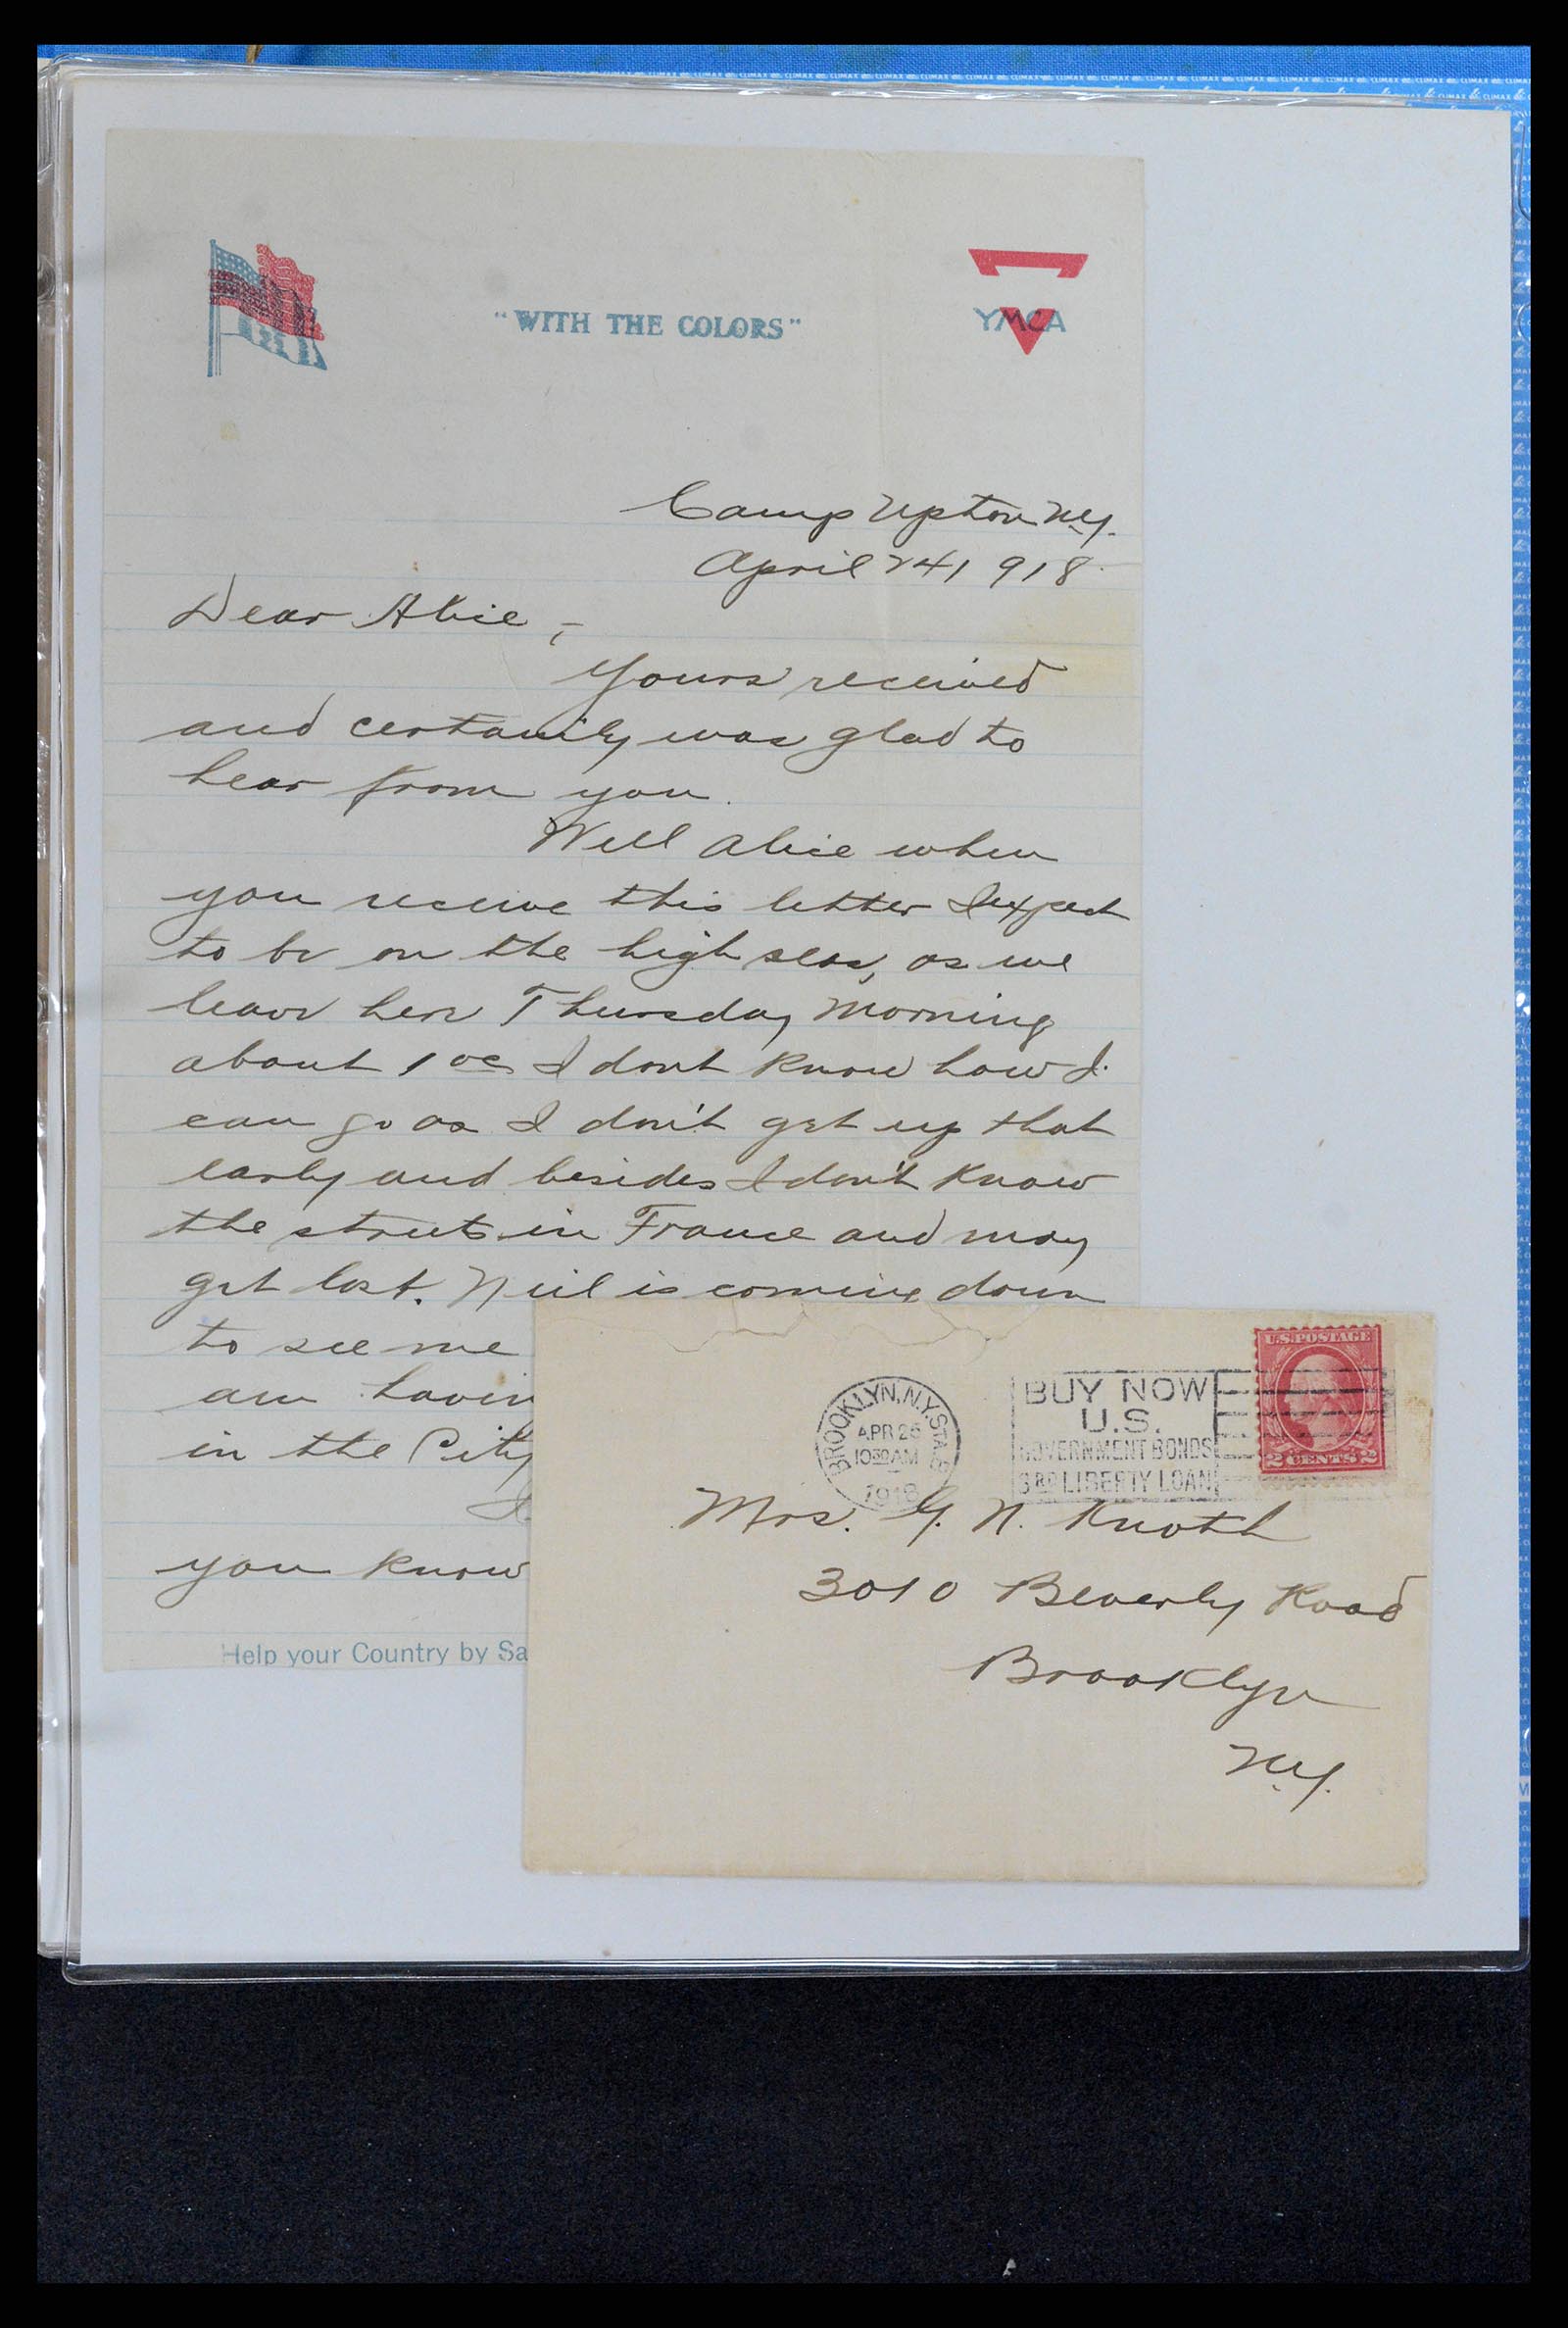 "WITH THE COLORS"
YMCA
Camp Upton N.Y.
April 24 1918.
Dear Alice,-
Yours received
and certainly was glad to
hear from you.
Well Alice when
you receive this letter I expect
to be on the high seas, as we
leave here Thursday Morning
about 1 oc I dont know how I
can go as I don't get up that
early and besides I don't know
the streets in France and may
get lost. Neil is coming down
to see me
am havin
in the City
I
you know
Help your Country by Sa
U.S. POSTAGE
2 CENTS 2
BROOKLYN, N.Y. STA.
APR 25
10 30 AM
1918
BUY NOW
U.S.
GOVERNMENT BONDS
3RD LIBERTY LOAN
Mrs. G. N. Knoth
3010 Beverly Road
Brooklyn
N.Y.